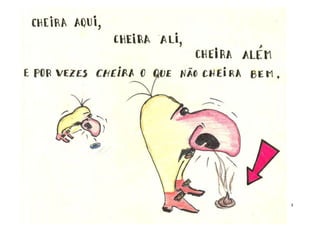 CHEIRA AQUI,
CHEIRA ALI,
CHEIRA ALÉM
E POR VEZES CHEIRA O QUE NÃO CHEIRA BEM.